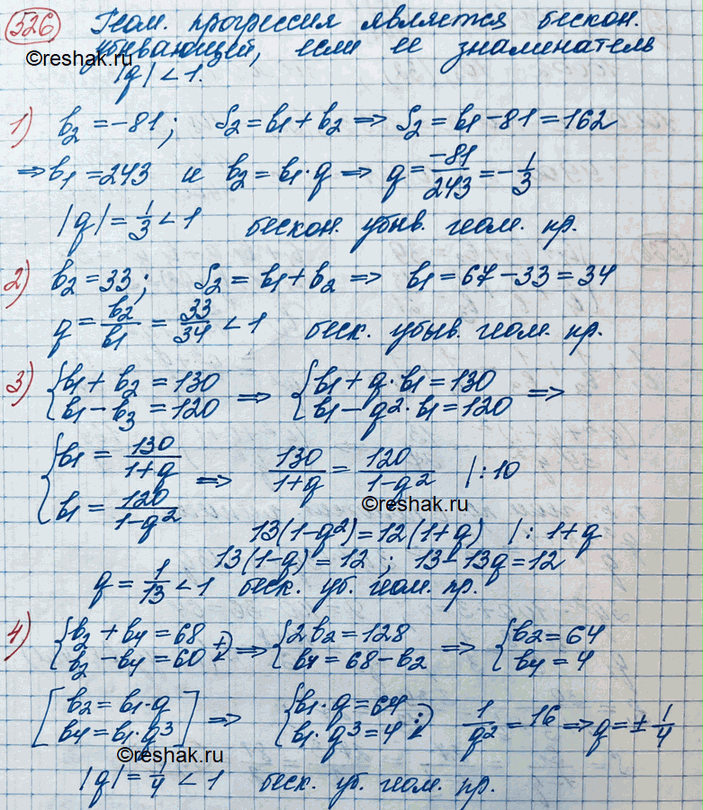 526 Геом. прогрессия является бескон.
убывающей, если ее знаменатель
©reshak.ru
|q| < 1.
1) b₂ = -81; S₂ = b₁ + b₂ ⇒ S₂ = b₁ - 81 = 162
⇒ b₁ = 243 и b₂ = b₁·q ⇒ q = -81/243 = -1/3
|q| = 1/3 < 1 бескон. убыв. геом. пр.
2) b₂ = 33; S₂ = b₁ + b₂ ⇒ b₁ = 67 - 33 = 34
q = b₂/b₁ = 33/34 < 1 беск. убыв. геом. пр.
3) {b₁ + b₂ = 130 ⇒ {b₁ + q·b₁ = 130 ⇒
b₁ - b₃ = 120 b₁ - q²·b₁ = 120
{b₁ = 130/(1+q) ⇒ 130/(1+q) = 120/(1-q²) |:10
b₁ = 120/(1-q²)
©reshak.ru
13(1-q²) = 12(1+q) |: 1+q
13(1-q) = 12; 13 - 13q = 12
q = 1/13 < 1 беск. уб. геом. пр.
4) {b₂ + b₄ = 68 ±) ⇒ {2b₂ = 128 ⇒ {b₂ = 64
b₂ - b₄ = 60 b₄ = 68 - b₂ b₄ = 4
[b₂ = b₁·q ] ⇒ {b₁·q = 64 :) 1/q² = 16 ⇒ q = ± 1/4
b₄ = b₁·q³ b₁·q³ = 4
©reshak.ru
|q| = 1/4 < 1 беск. уб. геом. пр.